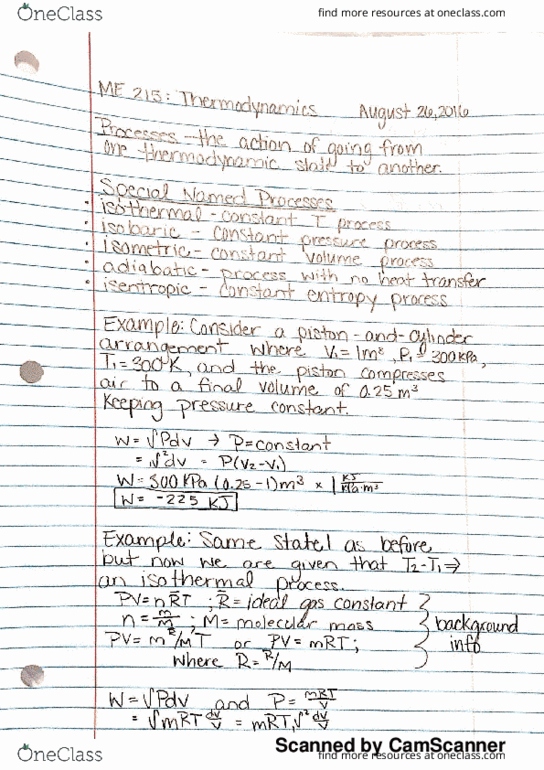 OneClass
find more resources at oneclass.com
ME 215: Thermodynamics August 26, 2016
Processes - the action of going from
one thermodynamic state to another.
Special Named Processes
• isothermal - constant T process
• isobaric - constant pressure process
• isometric - constant volume process
• adiabatic - process with no heat transfer
• isentropic - constant entropy process
Example: Consider a piston-and-cylinder
arrangement where V₁ = 1m³, P₁ = 300 kPa,
T₁ = 300°K, and the piston compresses
air to a final volume of 0.25 m³
keeping pressure constant.
W = ∫Pdv → P = constant
= ∫²dv = P(V₂-V₁)
W = 300 kPa (0.25-1)m³ × 1 kJ/kPa·m³
W = -225 KJ
Example: Same state1 as before,
but now we are given that T₂-T₁ ⇒
an isothermal process.
PV = nR̄T ; R̄ = ideal gas constant
n = m/M ; M = molecular mass
background
PV = m R̄/M T or PV = mRT;
info
where R = R̄/M
W = ∫Pdv and P = mRT/V
= ∫mRT dv/V = mRT₁∫² dv/V
Scanned by CamScanner
OneClass
find more resources at oneclass.com